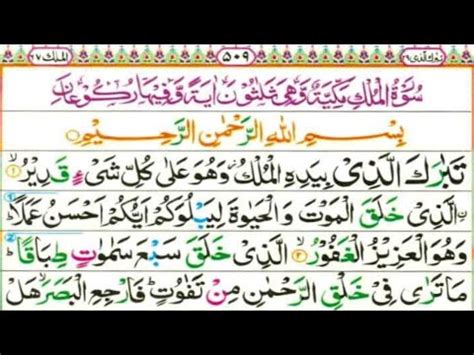 تبرك الذى ٢٩ ٥٠٩ الملك ٦٧
سُوْرَةُ الْمُلْكِ مَكِّيَّةٌ وَّهِىَ ثَلٰثُوْنَ اٰيَةً وَّفِيْهَا رُكُوْعَانِ
بِسْمِ اللهِ الرَّحْمٰنِ الرَّحِيْمِ
تَبٰرَكَ الَّذِىْ بِيَدِهِ الْمُلْكُ وَهُوَ عَلٰى كُلِّ شَىْءٍ قَدِيْرُ ۙ﴿۱﴾
نِ الَّذِىْ خَلَقَ الْمَوْتَ وَالْحَيٰوةَ لِيَبْلُوَكُمْ اَيُّكُمْ اَحْسَنُ عَمَلًا ؕ
وَهُوَ الْعَزِيْزُ الْغَفُوْرُ ۙ﴿۲﴾ الَّذِىْ خَلَقَ سَبْعَ سَمٰوٰتٍ طِبَاقًا ؕ
مَا تَرٰى فِىْ خَلْقِ الرَّحْمٰنِ مِنْ تَفٰوُتٍ ؕ فَارْجِعِ الْبَصَرَ هَلْ